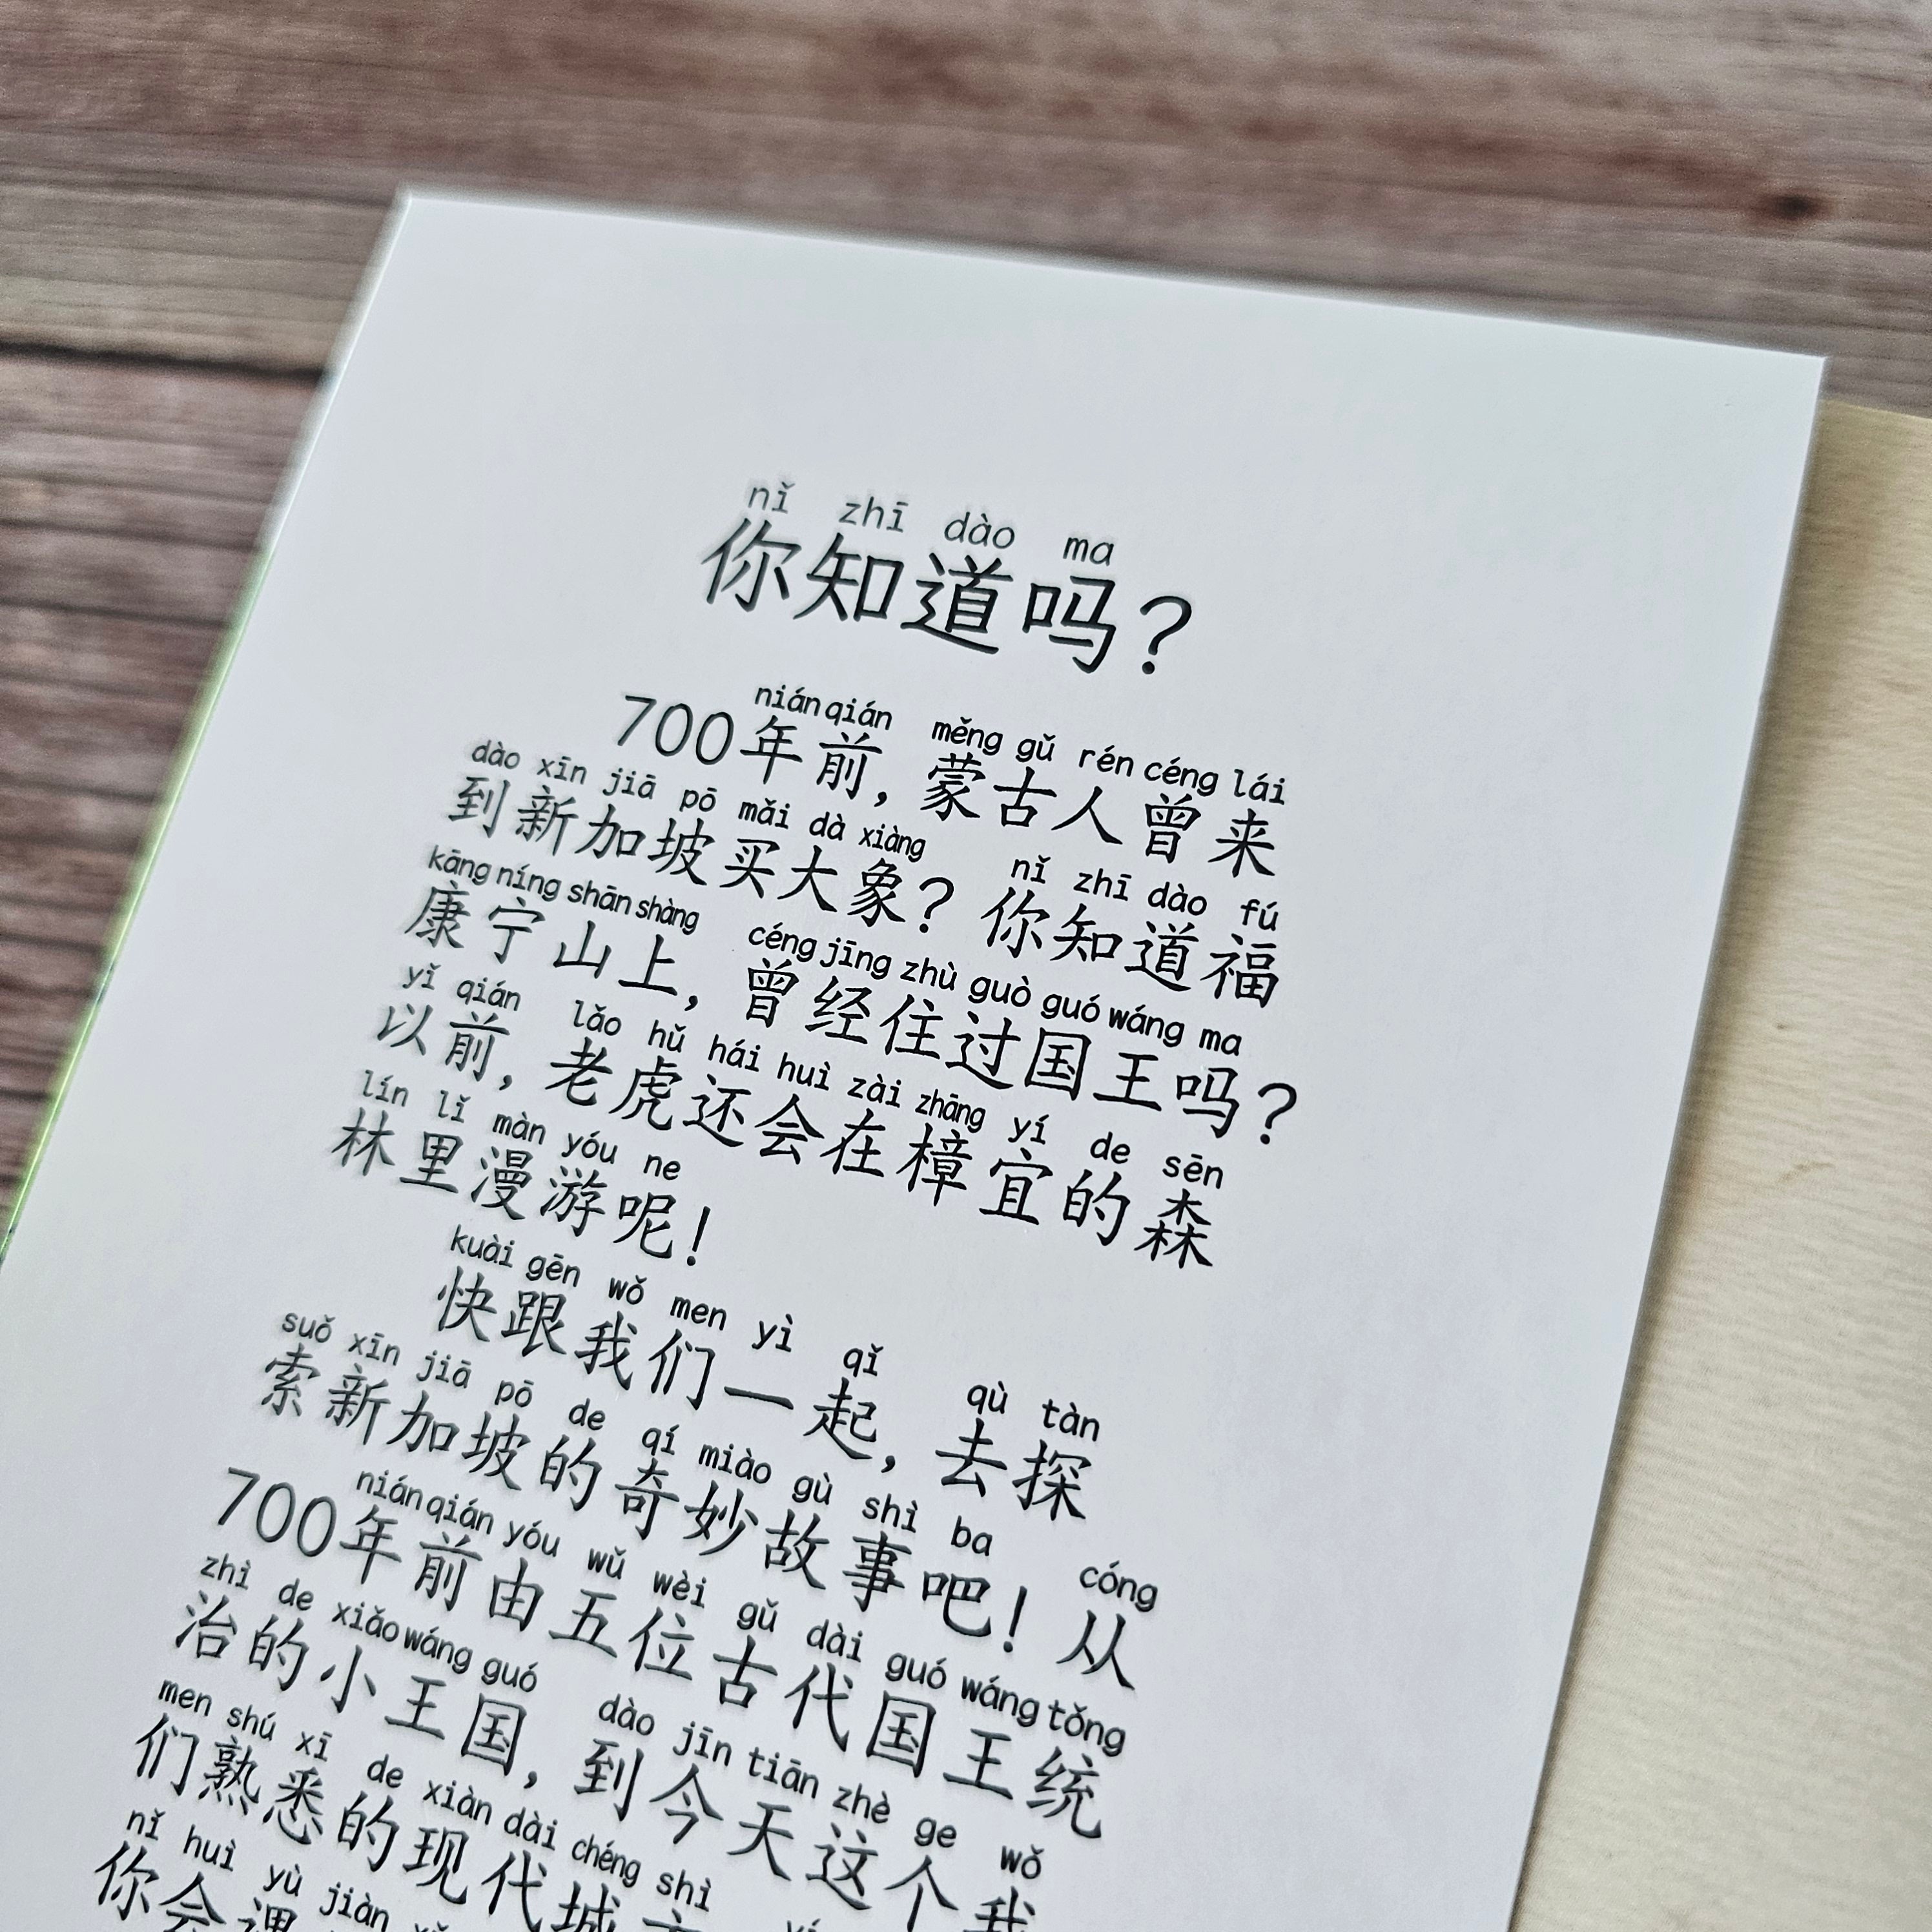 nǐ zhī dào ma
你知道吗？
nián qián měng gǔ rén céng lái
700年前，蒙古人曾来
dào xīn jiā pō mǎi dà xiàng nǐ zhī dào fú
到新加坡买大象？你知道福
kāng níng shān shàng céng jīng zhù guò guó wáng ma
康宁山上，曾经住过国王吗？
yǐ qián lǎo hǔ hái huì zài zhāng yí de sēn
以前，老虎还会在樟宜的森
lín lǐ màn yóu ne
林里漫游呢！
kuài gēn wǒ men yì qǐ qù tàn
快跟我们一起，去探
suǒ xīn jiā pō de qí miào gù shì ba cóng
索新加坡的奇妙故事吧！从
nián qián yóu wǔ wèi gǔ dài guó wáng tǒng
700年前由五位古代国王统
zhì de xiǎo wáng guó dào jīn tiān zhè ge wǒ
治的小王国，到今天这个我
men shú xī de xiàn dài chéng shì
们熟悉的现代城
nǐ huì yù jiàn
你会